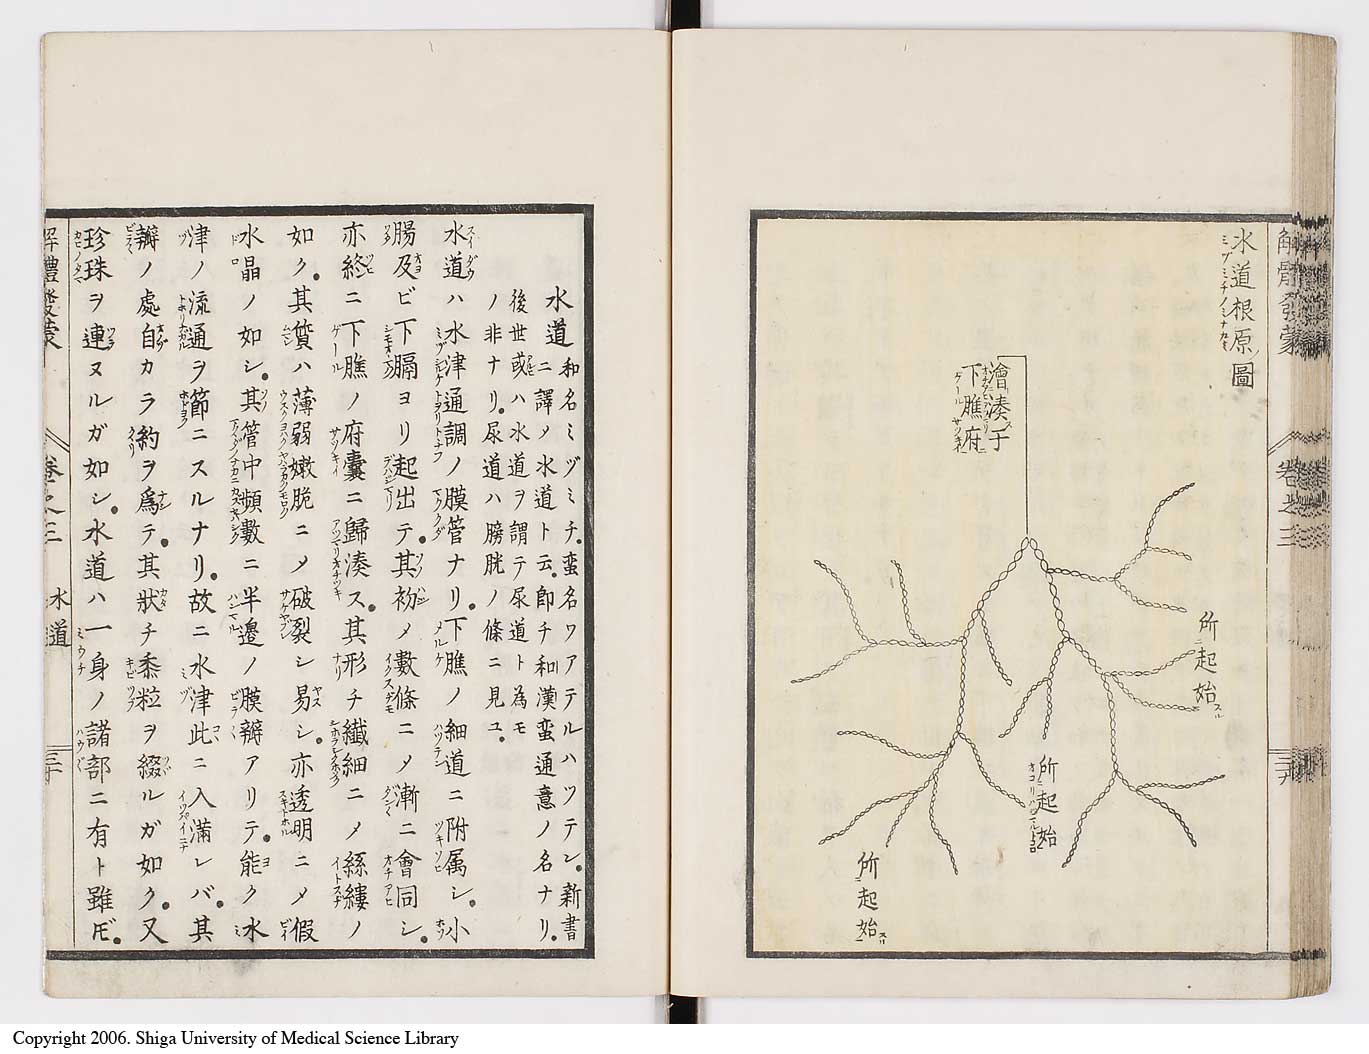 解體發蒙
卷之三
三十九
水道根原ノ圖
ミヅミチノミナカミ
澮湊于
下膲府
所起始
所起始
所起始
水道 和名ミヅミチ。蛮名ワアテルハツテン。新書
ニ譯ノ水道ト云。卽チ和漢蛮通意ノ名ナリ。
後世或ハ水道ヲ謂テ尿道ト為モ
ノ非ナリ。尿道ハ膀胱ノ條ニ見ユ。
水道ハ水津通調ノ膜管ナリ。下膲ノ細道ニ附属シ。小
腸及ビ下膈ヨリ起出テ。其初メ數條ニメ漸ニ會同シ。
亦終ニ下膲ノ府囊ニ歸湊ス。其形チ纎細ニメ絲縷ノ
如ク。其質ハ薄弱嫩脆ニメ破裂シ易シ。亦透明ニメ假
水晶ノ如シ。其管中頻數ニ半邊ノ膜瓣アリテ。能ク水
津ノ流通ヲ節ニスルナリ。故ニ水津此ニ入満レバ。其
瓣ノ處自カラ約ヲ爲テ。其狀チ黍粒ヲ綴ルガ如ク。又
珍珠ヲ連ヌルガ如シ。水道ハ一身ノ諸部ニ有ト雖𪜈。
解體發蒙
卷之三
水道
三十
Copyright 2006. Shiga University of Medical Science Library